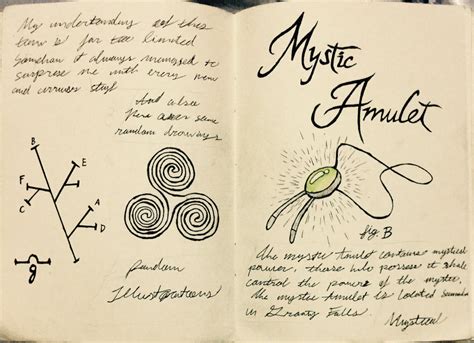 My understanding of this
town is far too limited
Somehow it always managed to
surprise me with every new
and
And also
here are some
random drawings
B
E
F
A
C
D
g
random
Illustrations
Mystic
Amulet
fig. B
The mystic Amulet contains mystical
power, those who possess it shall
control the powers of the mystic.
the mystic Amulet is Located
in Gravity Falls.
Mystical